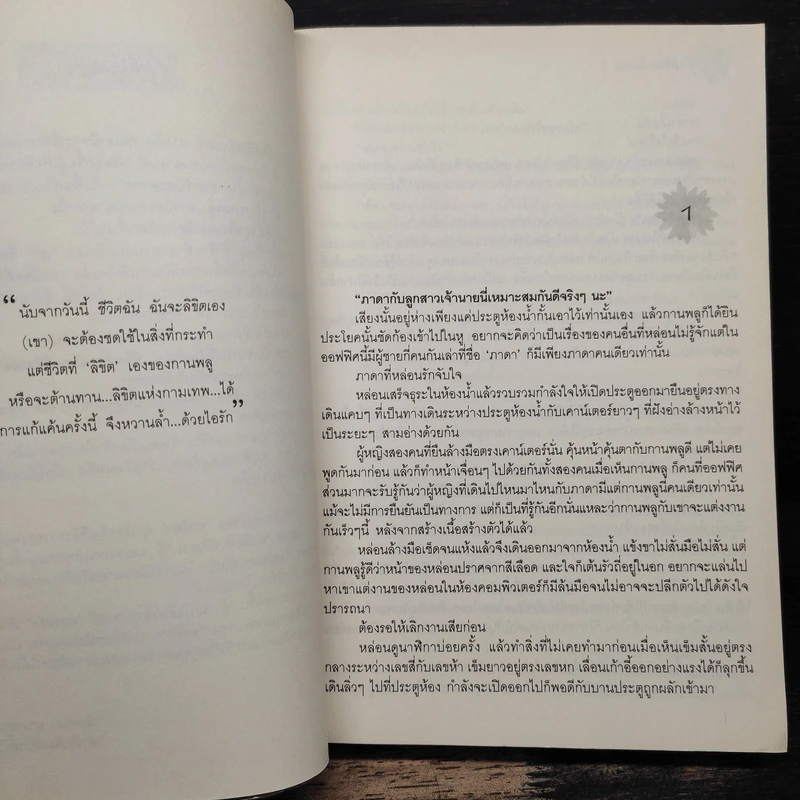 “นับจากวันนี้ ชีวิตฉัน ฉันจะลิขิตเอง
(เขา) จะต้องชดใช้ในสิ่งที่กระทำ
แต่ชีวิตที่ ‘ลิขิต’ เองของกานพลู
หรือจะต้านทาน...ลิขิตแห่งกามเทพ...ได้
การแก้แค้นครั้งนี้ จึงหวานล้ำ...ด้วยไอรัก”
1
“ภาดากับลูกสาวเจ้านายนี่เหมาะสมกันดีจริงๆ นะ”
เสียงนั้นอยู่ห่างเพียงแค่ประตูห้องน้ำกั้นเอาไว้เท่านั้นเอง แล้วกานพลูก็ได้ยิน
ประโยคนั้นชัดก้องเข้าไปในหู อยากจะคิดว่าเป็นเรื่องของคนอื่นที่หล่อนไม่รู้จักแต่ใน
ออฟฟิศนี้มีผู้ชายกี่คนกันเล่าที่ชื่อ ‘ภาดา’ ก็มีเพียงภาดาคนเดียวเท่านั้น
ภาดาที่หล่อนรักจับใจ
หล่อนเสร็จธุระในห้องน้ำแล้วรวบรวมกำลังใจให้เปิดประตูออกมายืนอยู่ตรงทาง
เดินแคบๆ ที่เป็นทางเดินระหว่างประตูห้องน้ำกับเคาน์เตอร์ยาวๆ ที่ฝังอ่างล้างหน้าไว้
เป็นระยะๆ สามอ่างด้วยกัน
ผู้หญิงสองคนที่ยืนล้างมือตรงเคาน์เตอร์นั่น คุ้นหน้าคุ้นตากับกานพลูดี แต่ไม่เคย
พูดกันมาก่อน แล้วก็ทำหน้าเจื่อนๆ ไปด้วยกันทั้งสองคนเมื่อเห็นกานพลู ก็คนที่ออฟฟิศ
ส่วนมากจะรับรู้กันว่าผู้หญิงที่เดินไปไหนมาไหนกับภาดามีแต่กานพลูนี่คนเดียวเท่านั้น
แม้จะไม่มีการยืนยันเป็นทางการ แต่ก็เป็นที่รู้กันอีกนั่นแหละว่ากานพลูกับเขาจะแต่งงาน
กันเร็วๆ นี้ หลังจากสร้างเนื้อสร้างตัวได้แล้ว
หล่อนล้างมือเช็ดจนแห้งแล้วจึงเดินออกมาจากห้องน้ำ แข้งขาไม่สั่นมือไม่สั่น แต่
กานพลูรู้ดีว่าหน้าของหล่อนปราศจากสีเลือด และใจก็เต้นรัวถี่อยู่ในอก อยากจะแล่นไป
หาเขาแต่งานของหล่อนในห้องคอมพิวเตอร์ก็มีล้นมือจนไม่อาจจะปลีกตัวไปได้ดังใจ
ปรารถนา
ต้องรอให้เลิกงานเสียก่อน
หล่อนดูนาฬิกาบ่อยครั้ง แล้วทำสิ่งที่ไม่เคยทำมาก่อนเมื่อเห็นเข็มสั้นอยู่ตรง
กลางระหว่างเลขสี่กับเลขห้า เข็มยาวอยู่ตรงเลขหก เลื่อนเก้าอี้ออกอย่างแรงได้ก็ลุกขึ้น
เดินลิ่วๆ ไปที่ประตูห้อง กำลังจะเปิดออกไปก็พอดีกับบานประตูถูกผลักเข้ามา